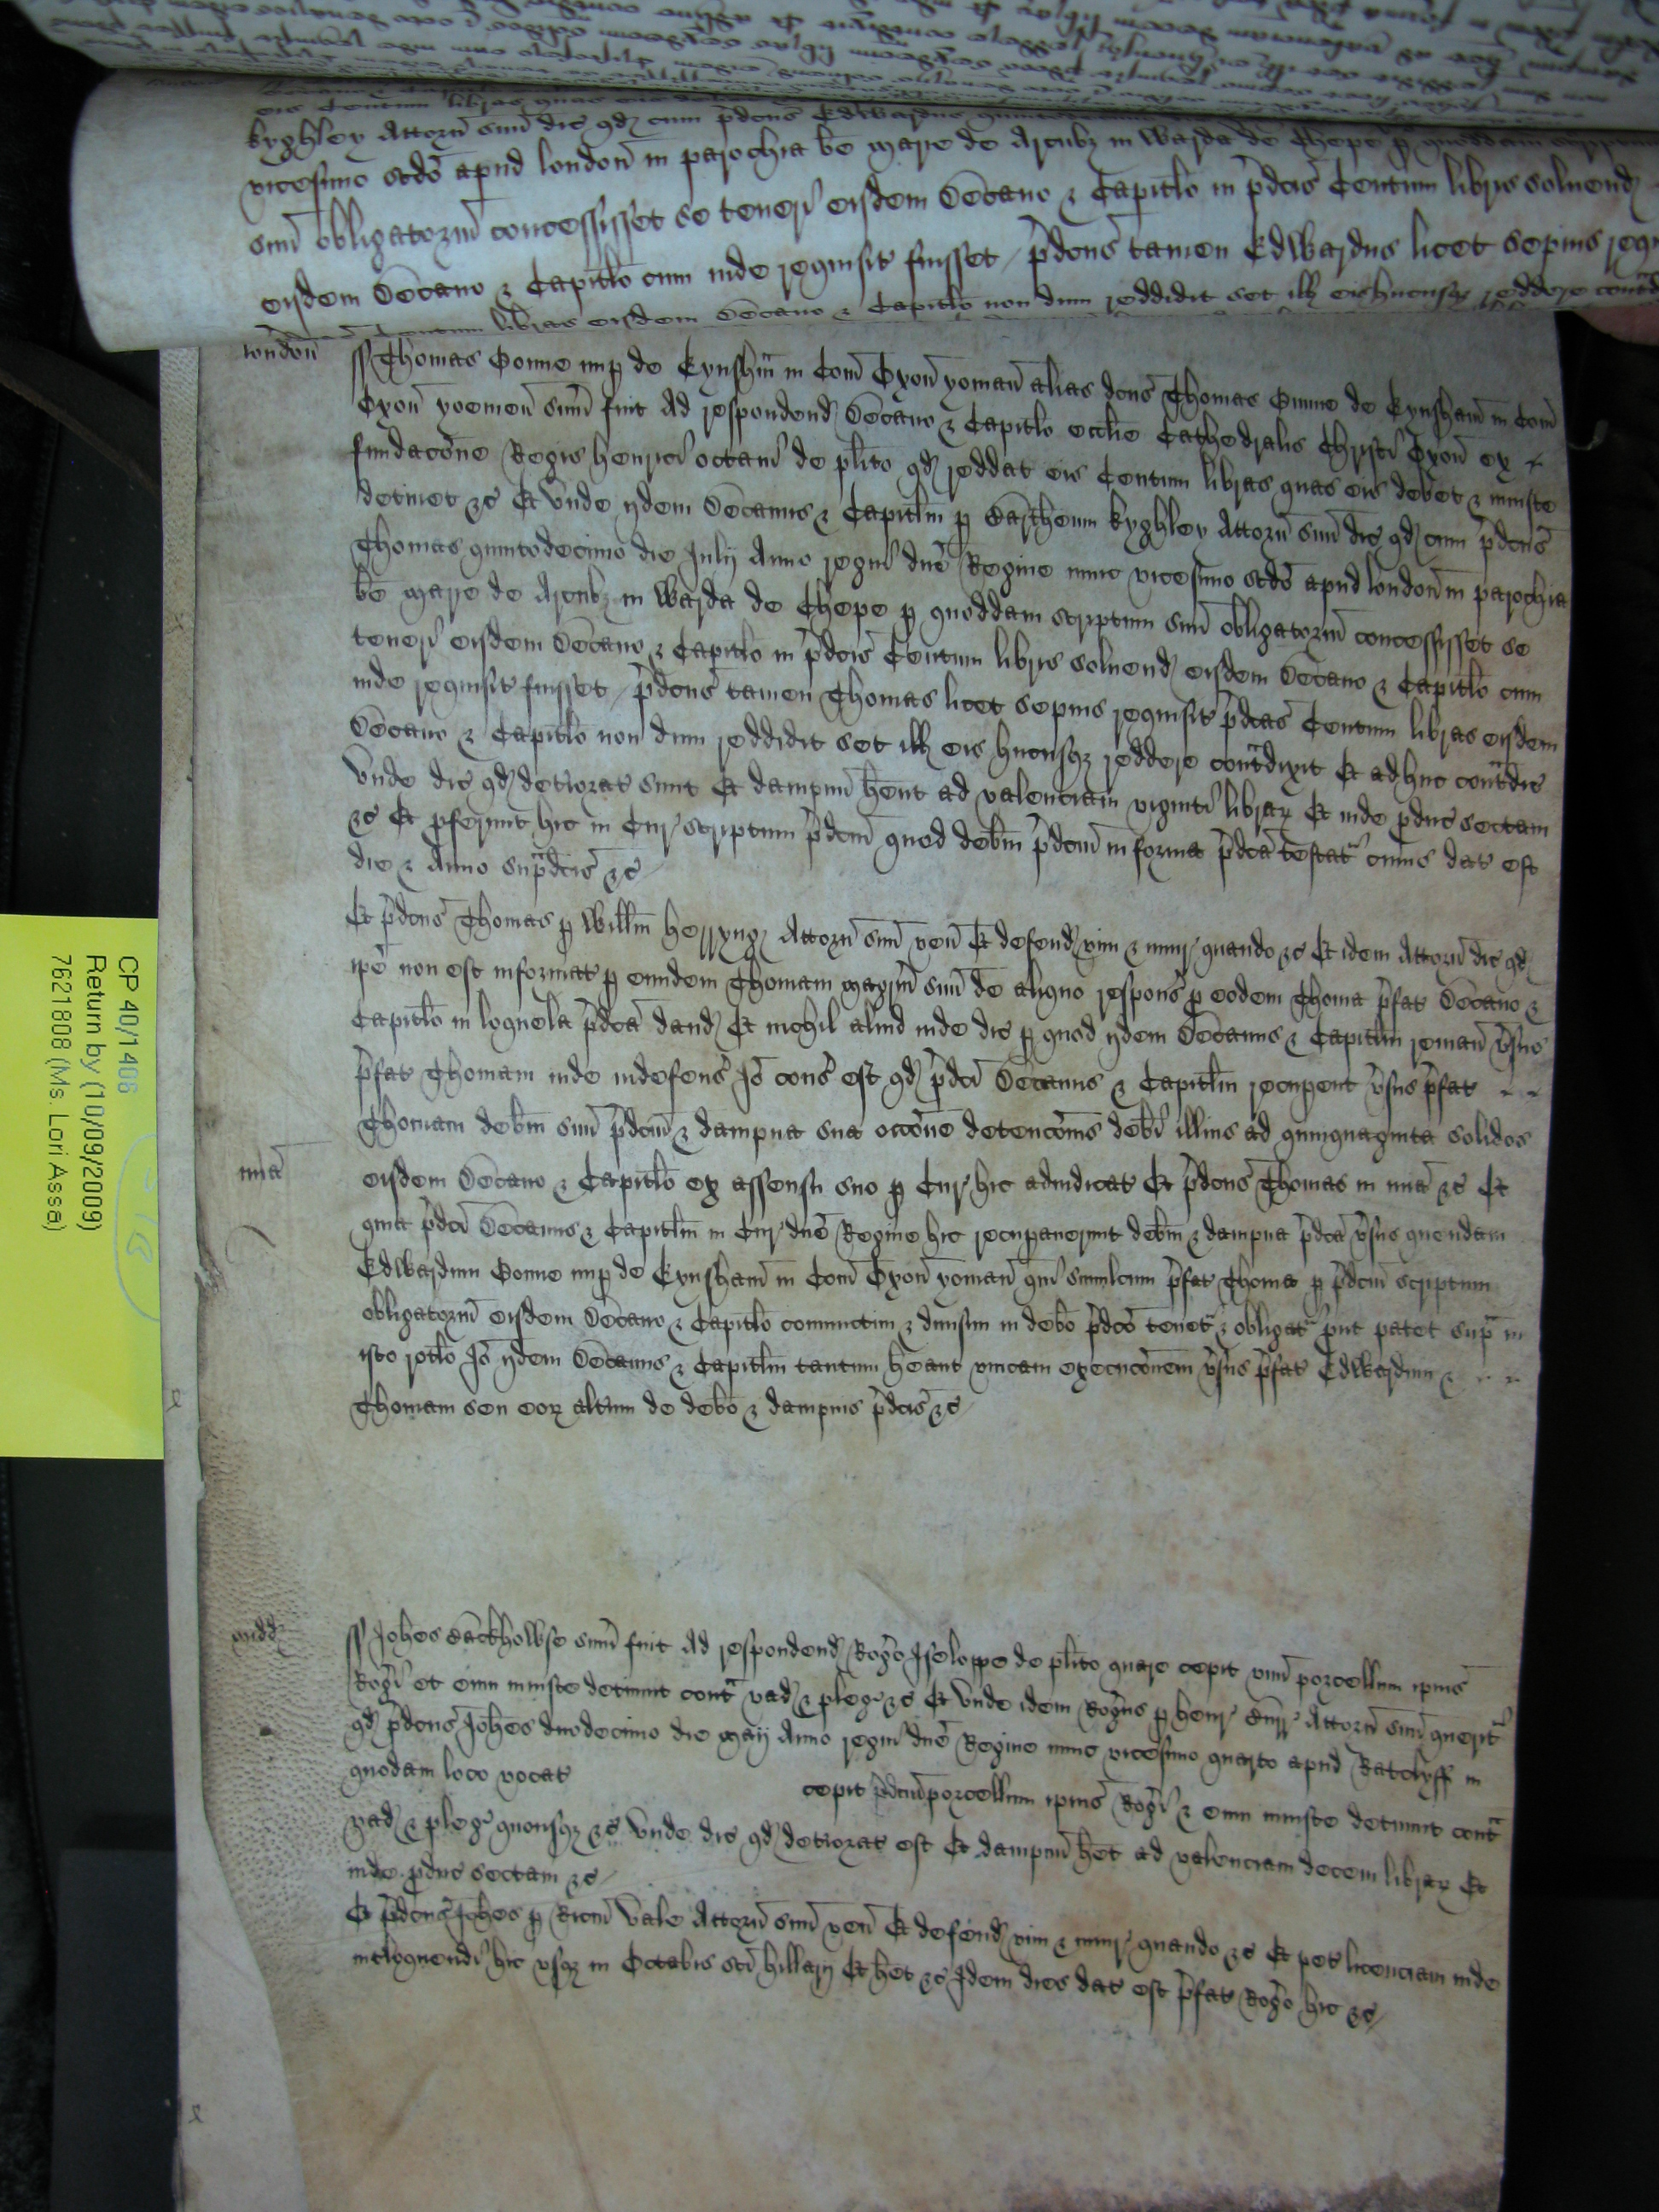 kyghley Attorn̄ suū dic̄ qd cum p̄dcūs Edwardus
vicesimo scdō apud london̄ in parochia bē marie de Arcubȝ in warda de Chepe p quoddam scriptum
suū obligatoriū concessisset se teneri eisdem Dēcano & Capitlo in p̄dcis Centum libris soluend
eisdem Dēcano & Capitlo cum inde requisit fuisset / p̄dcūs tamen Edwardus licet sepius requ
Centum libras eisdem Dēcano & Capitlo non dum reddidit set ill eis hucusqȝ reddere contrad
london̄ ss Thomas Bonne nup de Eynshm̄ in Com̄ Oxon̄ yoman̄ alias dcūs Thomas de Eynsham̄ in Com̄
Oxon̄ yoemen̄ sum̄ fuit Ad respondend Dēcano & Capitlo eccl̄ie Cathedralis Christi Oxon̄ ex
fundacōne Regis henrici octaui de pl̄ito qd reddat eis Centum libras quas eis debet & iniuste
detinet &c Et vnde ijdem Dēcanus & Capitlm p kyghley Attorn̄ suū dic̄ qd cum p̄dcūs
Thomas quintodecimo die Julij Anno regni dnē Regine nunc vicesimo scdō apud london̄ in parochia
bē marie de Arcubȝ in warda de Chepe p quoddam scriptum suū obligatoriū concessisset se
teneri eisdem Dēcano & Capitlo in p̄dcis Centum libris soluend eisdem Dēcano & Capitlo cum
inde requisit fuisset / p̄dcūs tamen Thomas licet sepius requisit p̄dcas Centum libras eisdem
Dēcano & Capitlo non dum reddidit set ill eis hucusqȝ reddere contradixit Et adhuc contradic̄
vnde dic̄ qd deteriorat sunt Et dampnū hēnt ad valenciam viginti librar Et inde pduc̄ sectam
&c Et pferunt hic in Cur scriptum p̄dcm̄ quod debm̄ p̄dcm̄ in forma p̄dca testatr cuius dat est
die & Anno sup̄dcis &c
Et p̄dcūs Thomas p willm̄ Attorn̄ suū ven̄ Et defend vim & iniur quando &c Et idem Attorn̄ dic̄ qd
ipē non est informat p eundem Thomam magrm̄ suū de aliquo respons p eodem Thoma p̄fat Dēcano &
Capitlo in loquela p̄dca dand Et nichil aliud inde dic̄ p quod ijdem Dēcanus & Capitlm reman̄ vsus
p̄fat Thomam inde indefens Jō cons est qd p̄dci Dēcanus & Capitlm recupent vsus p̄fat
Thomam debm̄ suū p̄dcm̄ & dampna sua occōne detencōnis debi illius ad quinquaginta solidos
mia eisdem Dēcano & Capitlo ex assensu suo p Cur hic adiudicat Et p̄dcūs Thomas in mia &c Et
quia p̄dci Dēcanus & Capitlm in Cur dnē Regine hic recupauerunt debm̄ & dampna p̄dca vsus quendam
Edwardum Bonne nup de Eynsham̄ in Com̄ Oxon̄ yoman̄ qui simulcum p̄fat Thoma p p̄dcm̄ scriptum
obligatoriū eisdem Dēcano & Capitlo coniunctim & diuisim in debō p̄dcō tenet & obligat put patet sup̄ in
isto rotlo Jō ijdem Dēcanus & Capitlm tantum hēant vnicam execucōnem vsus p̄fat Edwardum &
Thomam seu eor altrum de debō & dampnis p̄dcis &c
midd ss Johes sum̄ fuit Ad respondend Rogo Iseloppe de pl̄ito quare cepit vnū porcellum ipius
Rogi et eum iniuste detinuit contr̄ vad & pleg &c Et vnde idem Rogus p henr Attorn̄ suū querit
qd p̄dcūs Johes duodecimo die maij Anno regni dnē Regine nunc vicesimo quarto apud Ratclyff in
quodam loco vocat cepit p̄dcm̄ porcellum ipius Rogi & eum iniuste detinuit contr̄
vad & pleg quousqȝ &c vnde dic̄ qd deteriorat est Et dampnū hēt ad valenciam decem librar Et
inde pduc̄ sectam &c
Et p̄dcūs Johes p Ricm̄ vale Attorn̄ suū ven̄ Et defend vim & iniur quando &c Et pet licenciam inde
intloquendi hic vsqȝ in Octabis sci hillarij Et hēt &c Jdem dies dat est p̄fat Rogo hic &c
CP 40/1406
Return by (10/09/2009)
7621808 (Ms. Lori Assa)